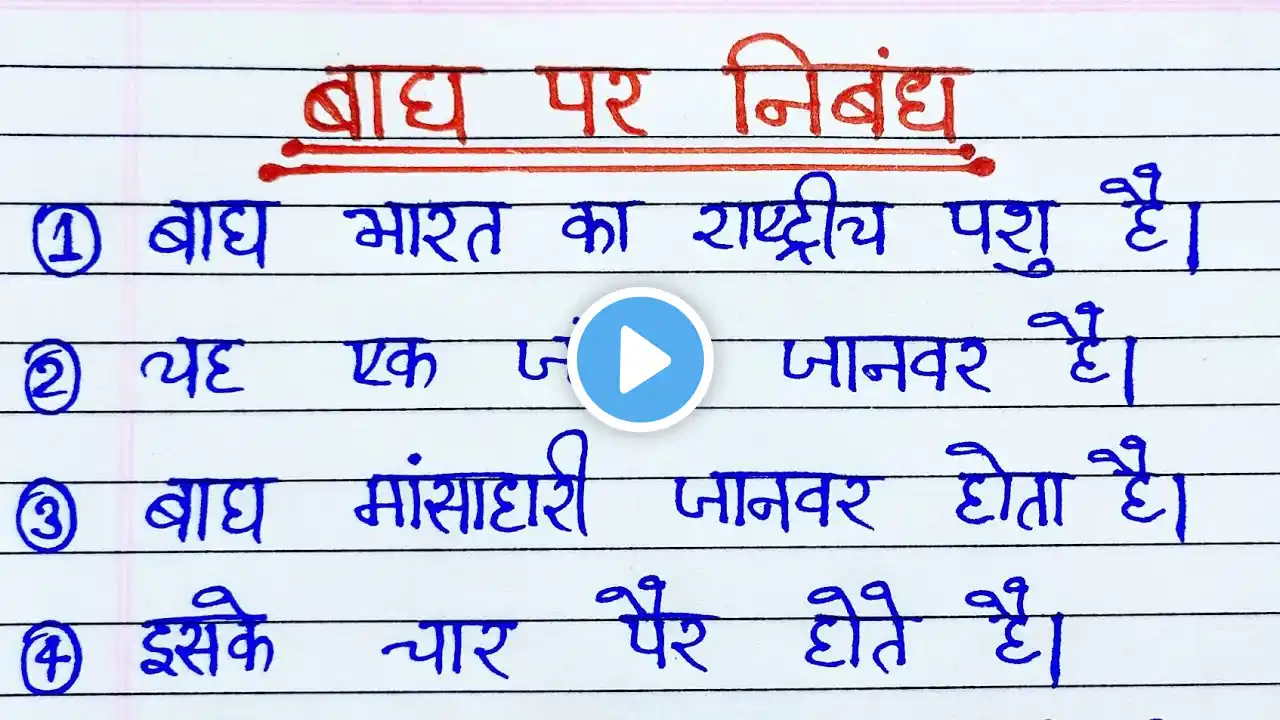 बाघ पर निबंध
① बाघ भारत का राष्ट्रीय पशु है।
② यह एक जानवर है।
③ बाघ मांसाहारी जानवर होता है।
④ इसके चार पैर होते है।